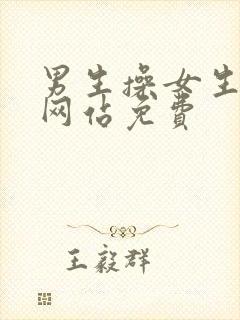 男生操女生
网佔免費
王毅群